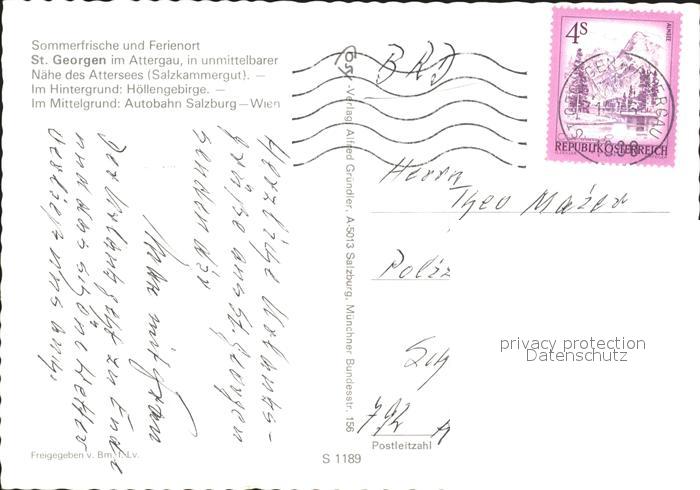 Sommerfrische und Ferienort
St. Georgen im Attergau, in unmittelbarer
Nähe des Attersees (Salzkammergut). —
Im Hintergrund: Höllengebirge. —
Im Mittelgrund: Autobahn Salzburg — Wien
Herzliche Urlaubs-
grüße aus St. Georgen
senden dir
Hans mit Fran
Der Urlaub geht zu Ende
und das schöne Wetter
verlässt uns auch.
Freigegeben v. Bm. f. Lv.
-Verlag Alfred Gründler, A-5013 Salzburg, Münchner Bundesstr. 156
S 1189
BRD
4S
ALMSEE
REPUBLIK ÖSTERREICH
Herrn
Theo
Poliz
Sch
792
Postleitzahl
privacy protection
Datenschutz